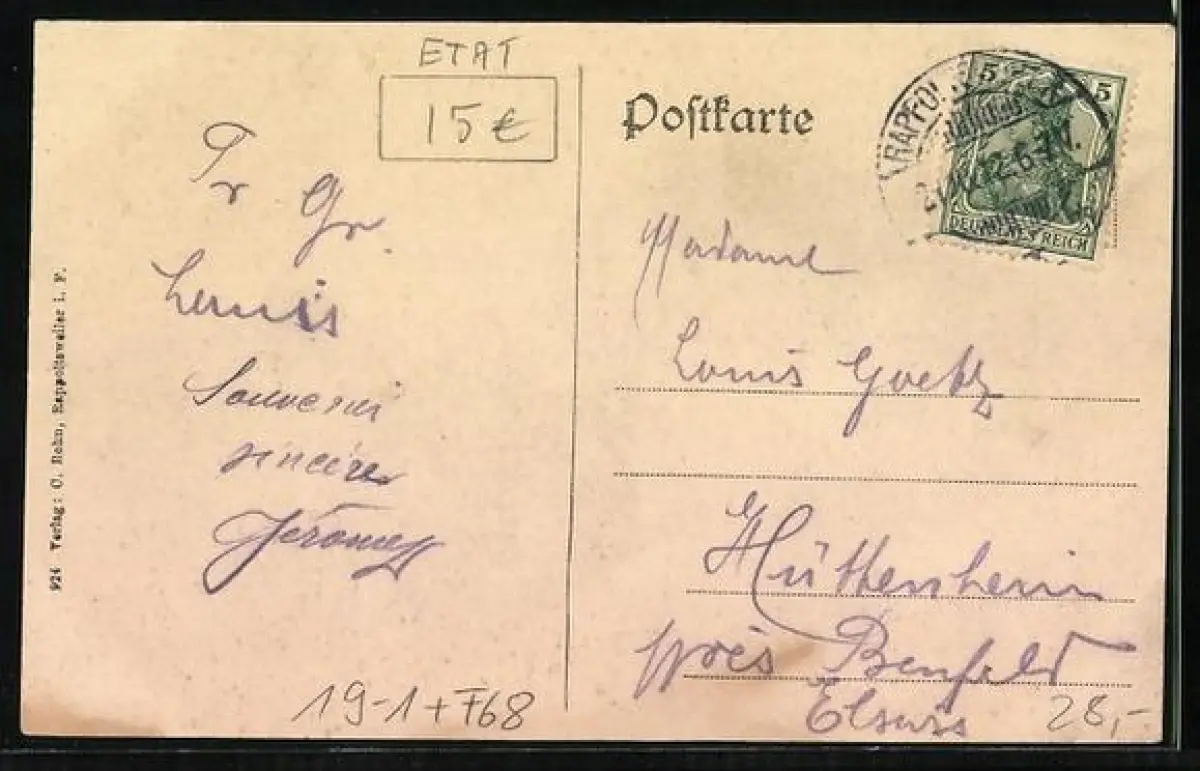 ETAT
15€
Gr
Louis
Souvenir
sincère
Jérôme
924 Verlag: O. Rohn, Rappoltsweiler i. F.
19-1+F68
Postkarte
5 5
DEUTSCHES REICH
12.6-7N.
Madame
Louis Goetz
Hüttenheim
près Benfeld
Elsass
28,-